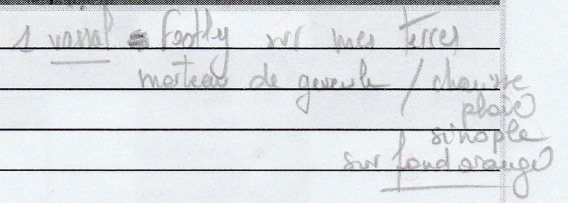 1 vassal = Fostly sur mes terres
marteau de gueule / chausse
ploié
sinople
sur fond orangé